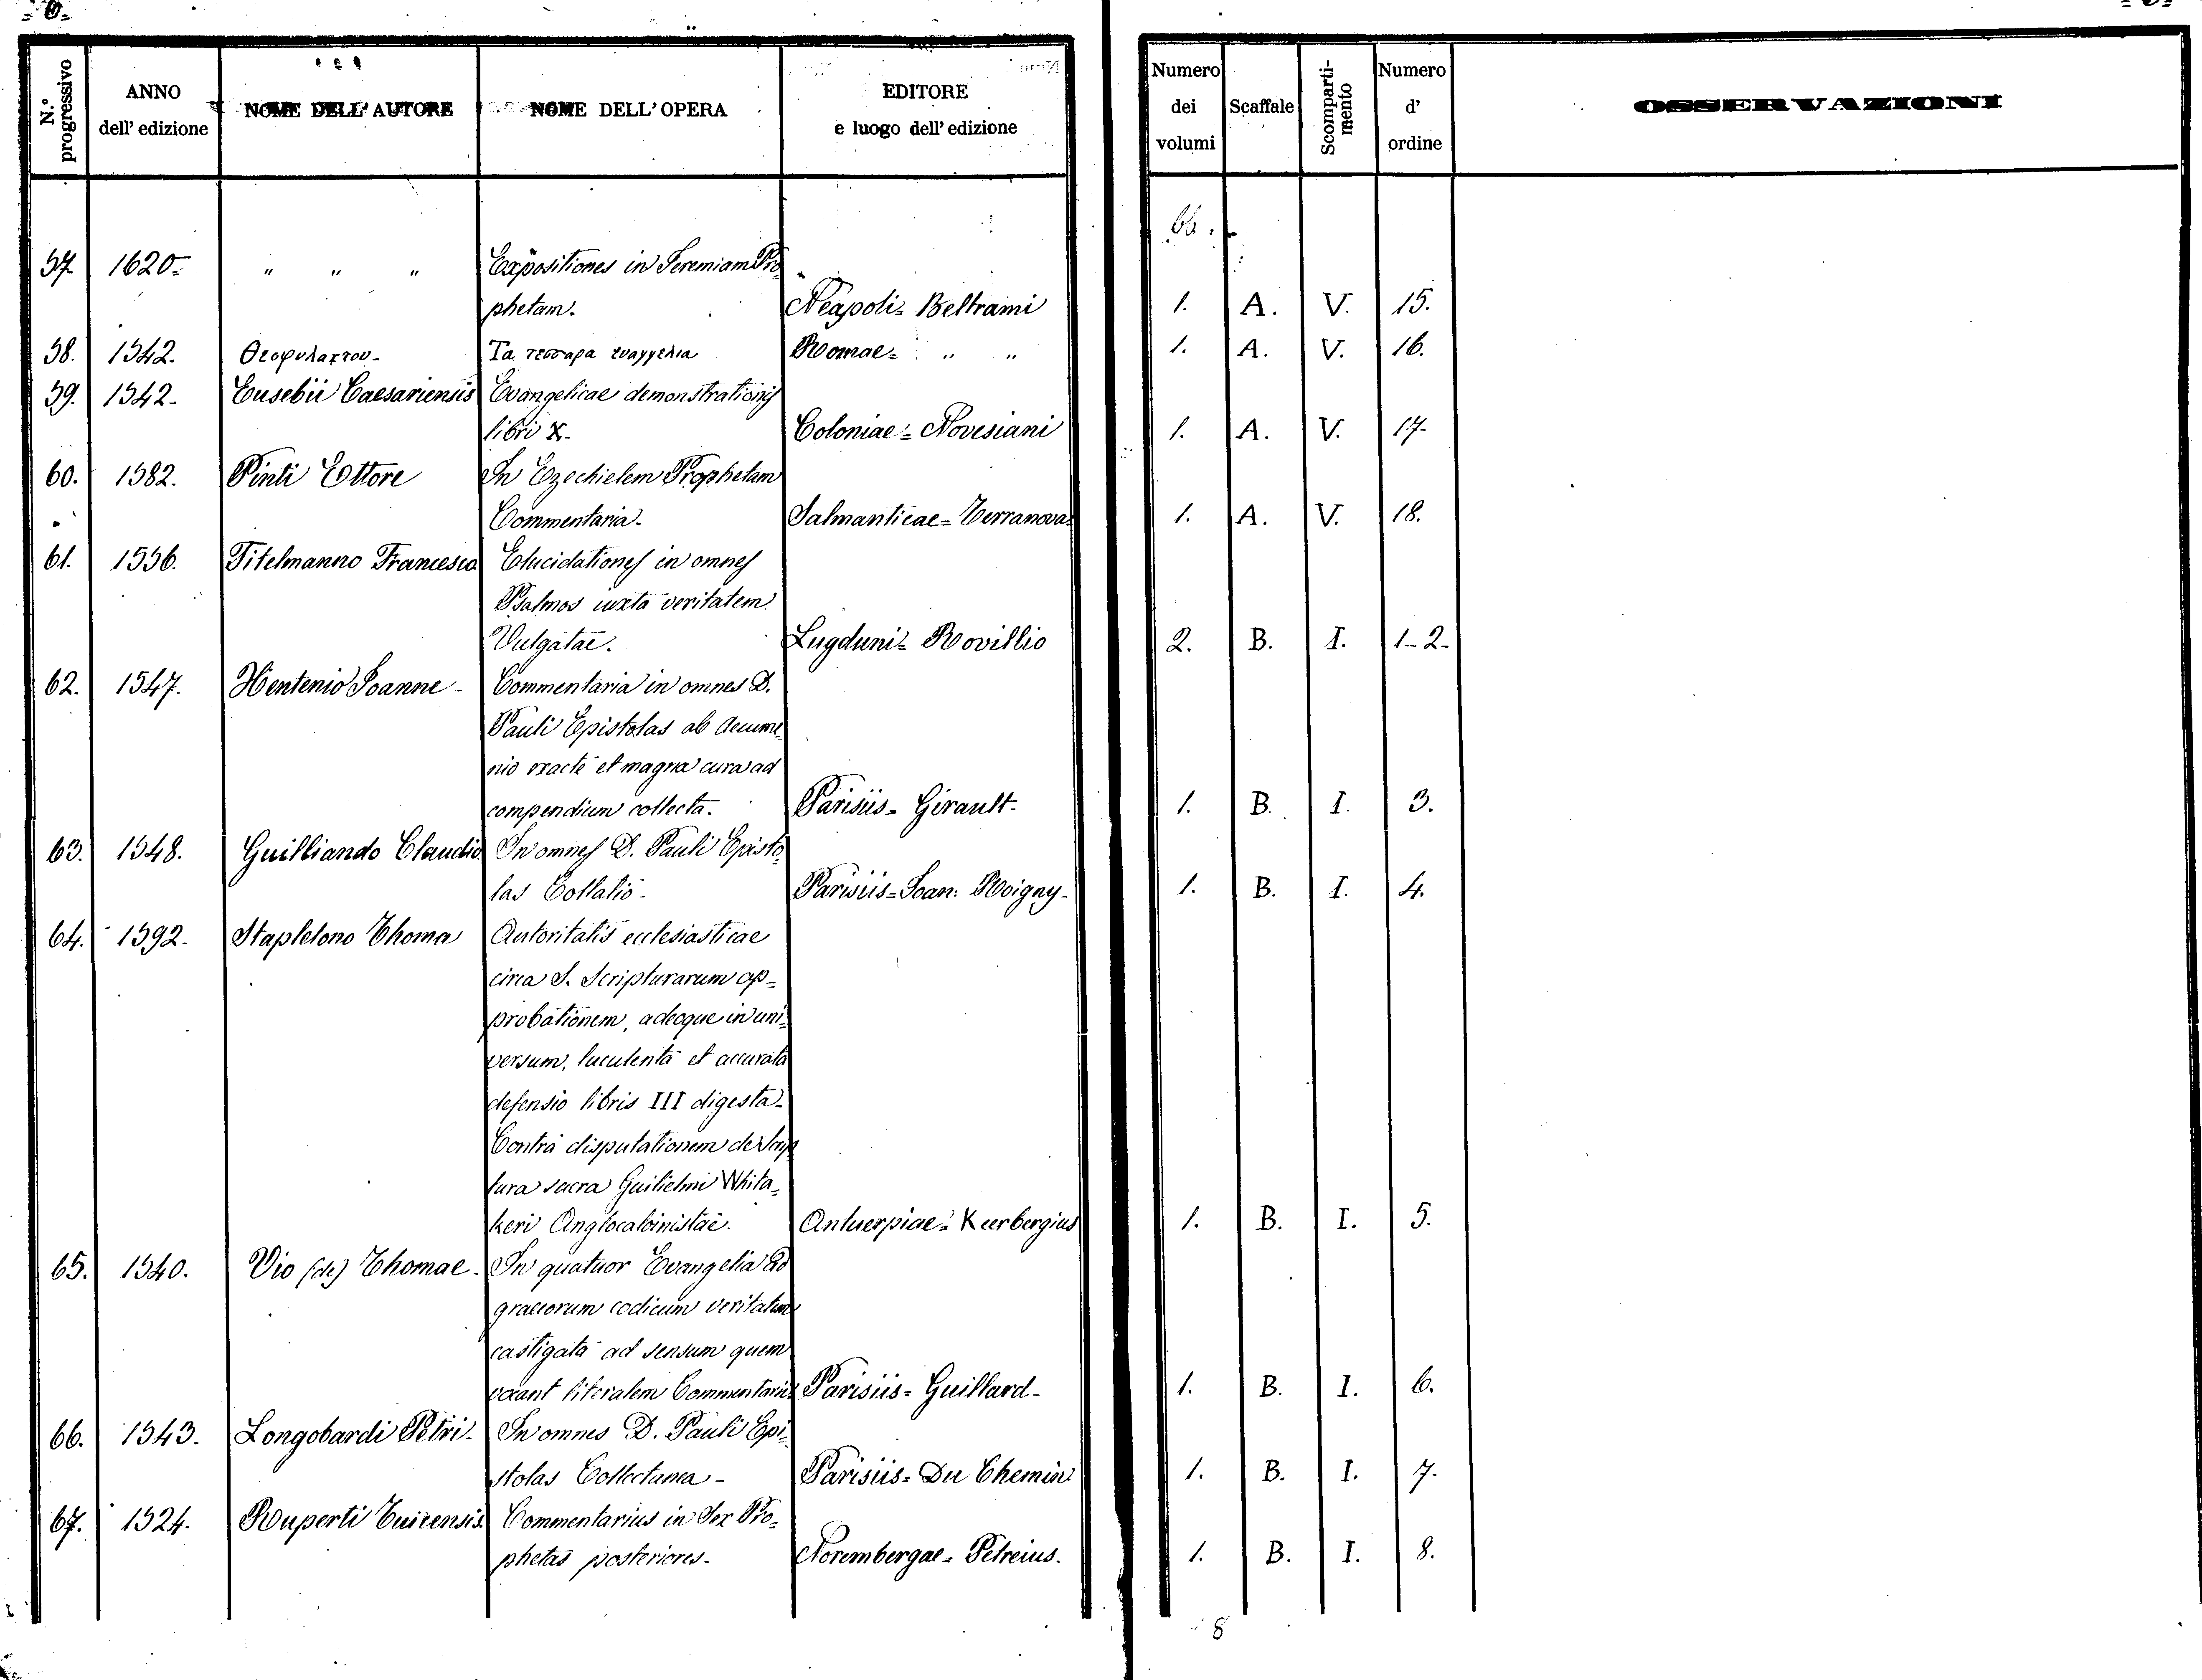 = 6 =
N.° progressivo
ANNO dell' edizione
NOME DELL' AUTORE
NOME DELL' OPERA
EDITORE e luogo dell' edizione
Numero dei volumi
Scaffale
Scomparti- mento
Numero d' ordine
OSSERVAZIONI
66.
57. 1620= " " " Expositiones in Jeremiam Pro=
phetam. Neapoli= Beltrami 1. A. V. 15.
58. 1542. Θεοφυλακτου- Τα τεσσαρα ευαγγελια Romae= " " 1. A. V. 16.
59. 1542- Eusebii Caesariensis Evangelicae demonstrationis
libri X- Coloniae= Novesiani 1. A. V. 17-
60. 1582. Pinti Ettore In Ezechielem Prophetam
Commentaria- Salmanticae= Terranova= 1. A. V. 18.
61. 1556. Titelmanno Francesco Elucidationes in omnes
Psalmos iuxta veritatem
Vulgatae. Lugduni= Rovillio 2. B. I. 1-2-
62. 1547. Hentenio Joanne- Commentaria in omnes D.
Pauli Epistolas ab Oecume=
nio exacte et magna cura ad
compendium collecta. Parisiis= Girault- 1. B. I. 3.
63. 1548. Guilliando Claudio In omnes D. Pauli Episto=
las Collatio- Parisiis= Joan: Roigny- 1. B. I. 4.
64. 1592- Stapletono Thoma Autoritatis ecclesiasticae
circa S. Scripturarum ap=
probationem, adeoque in uni=
versum, luculenta et accurata
defensio libris III digesta-
Contra disputationem de Scrip
tura sacra Guilielmi Whita=
keri Anglocalvinistae. Antuerpiae= Keerbergius 1. B. I. 5.
65. 1540. Vio (de) Thomae- In quatuor Evangelia ad
graecorum codicum veritatem
castigata ad sensum quem
vocant literalem Commentarii Parisiis= Guillard- 1. B. I. 6.
66. 1543. Longobardi Petri- In omnes D. Pauli Epi=
stolas Collectanea- Parisiis= Du Chemin 1. B. I. 7-
67. 1524. Ruperti Tuitensis Commentarius in Sex Pro=
phetas posteriores- Norembergae= Petreius. 1. B. I. 8.
8